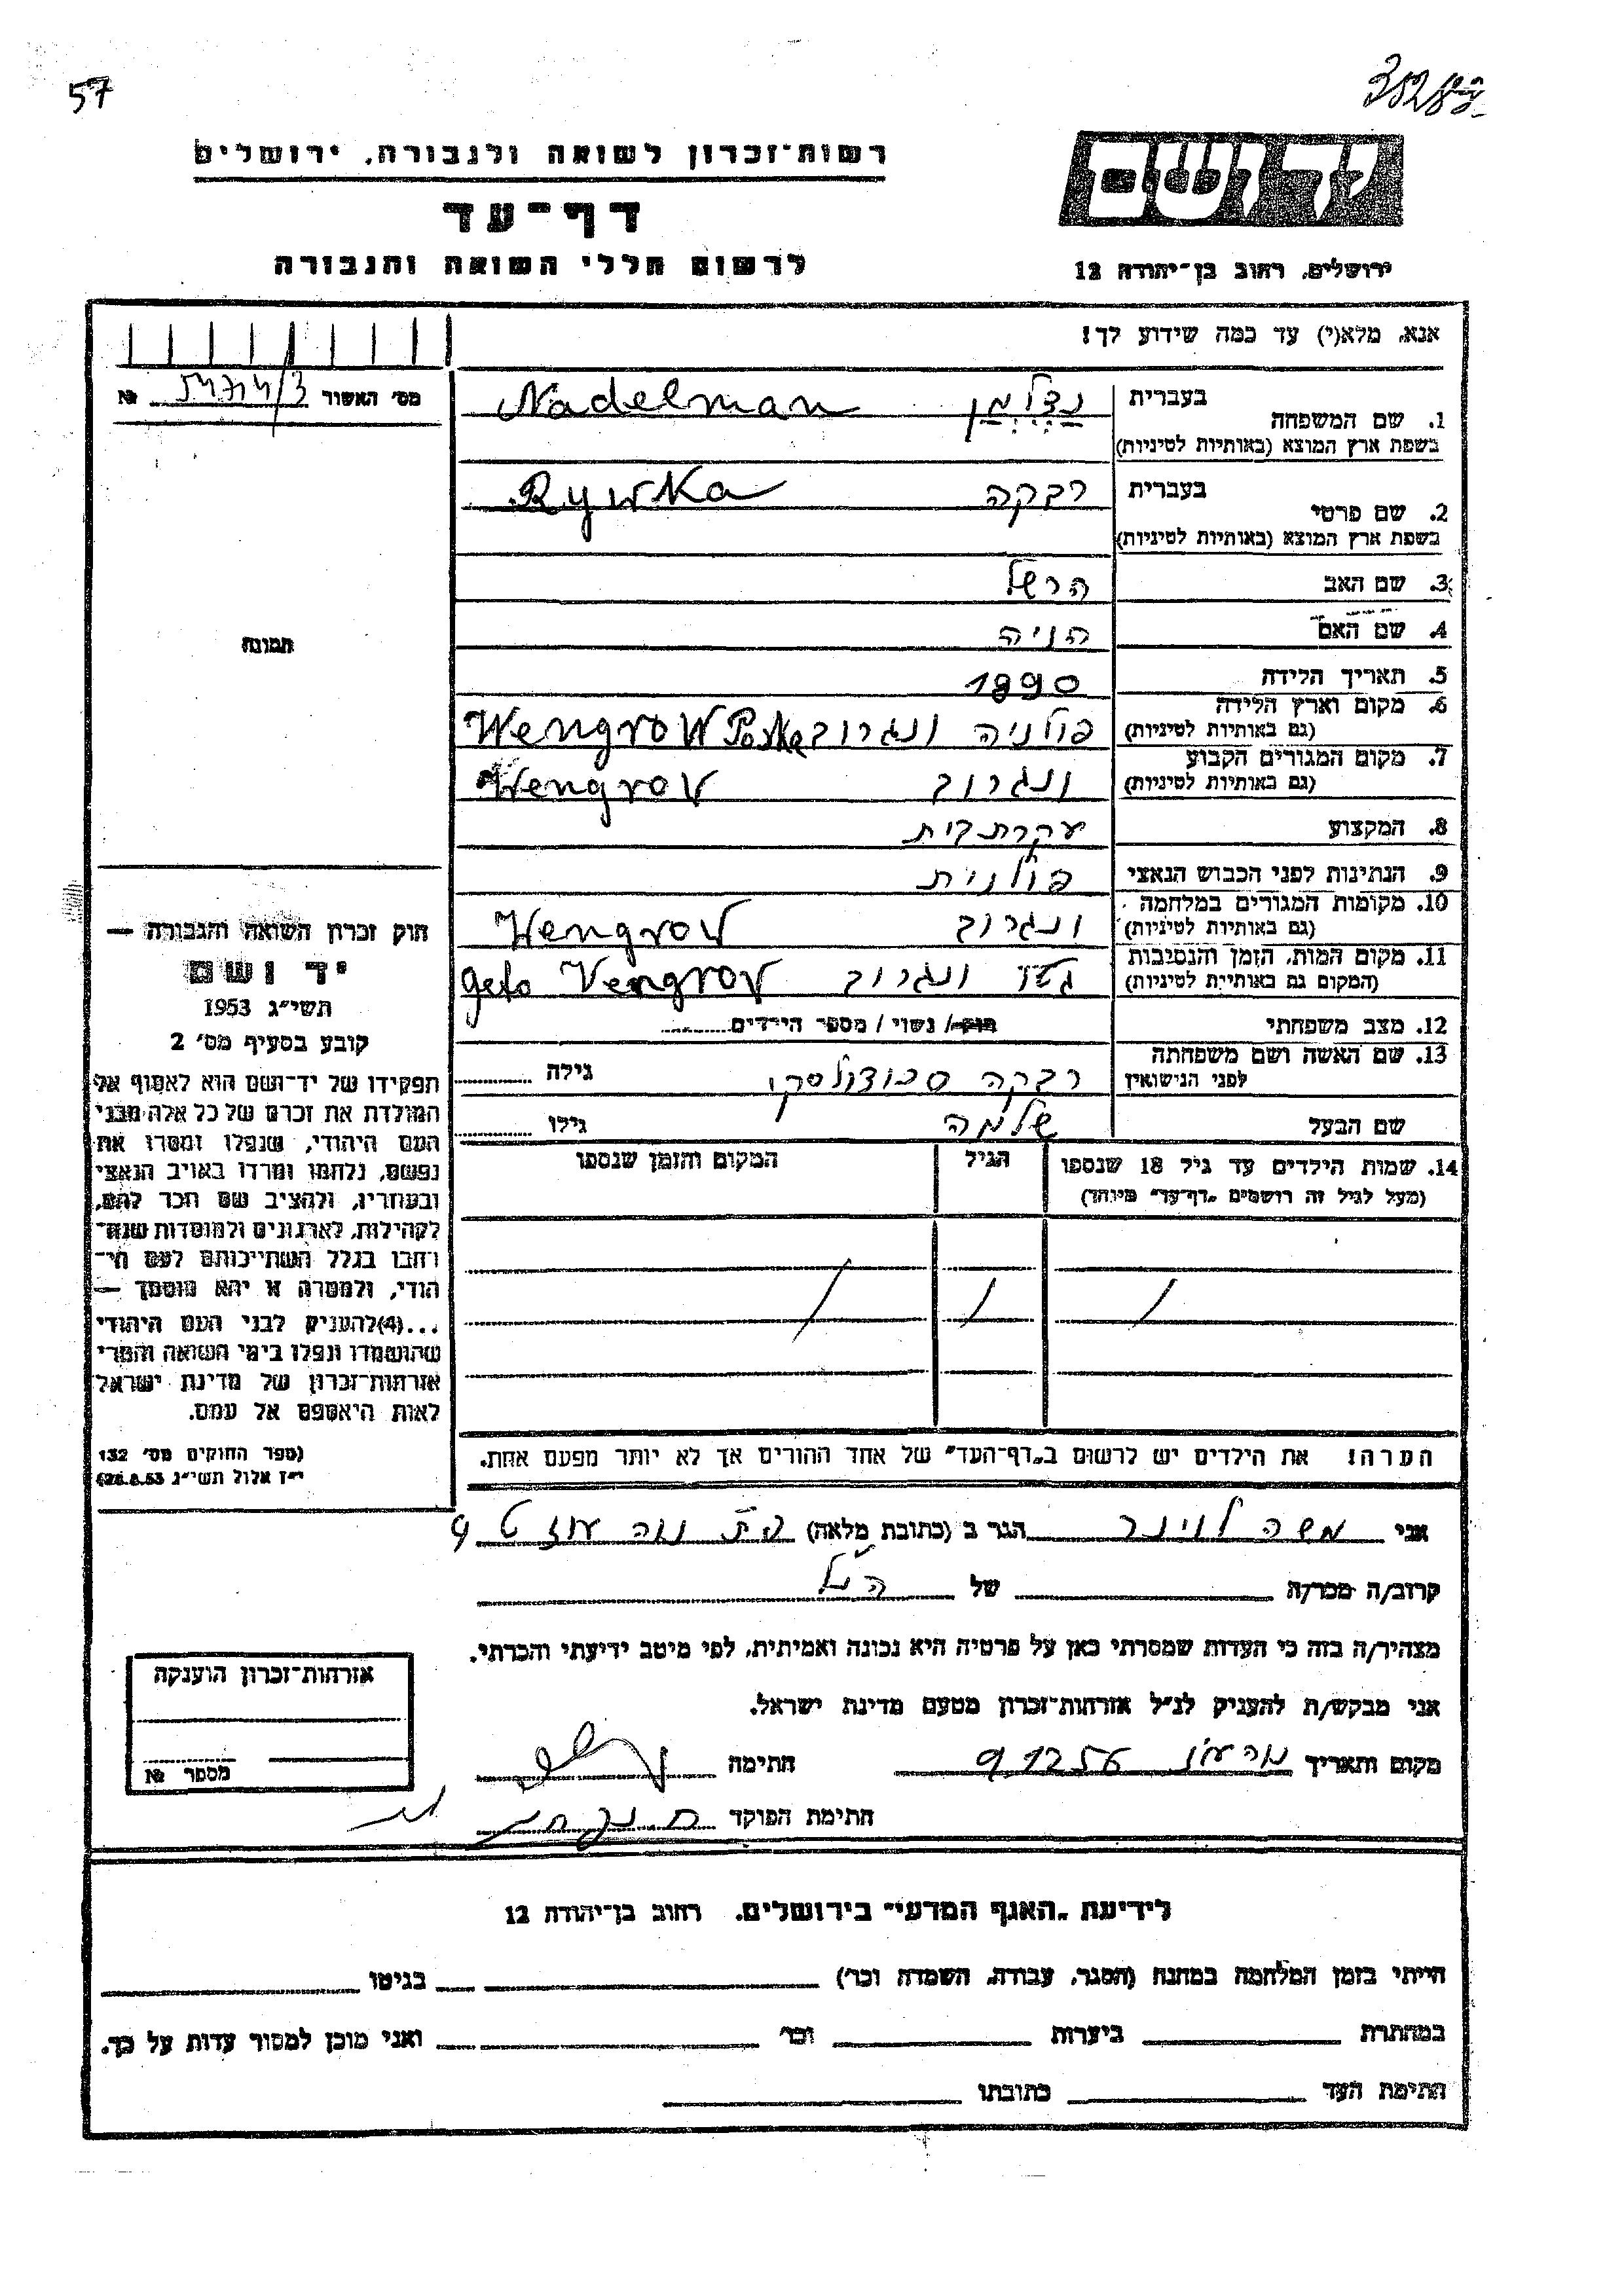 57
352/83
יד ושם
רשות-זכרון לשואה ולגבורה, ירושלים
דף-עד
לרשום חללי השואה והגבורה
ירושלים, רחוב בן-יהודה 12
אנא, מלא(י) עד כמה שידוע לך!
מס' האשור №
1. שם המשפחה בעברית נדלמן Nadelman
בשפת ארץ המוצא (באותיות לטיניות)
2. שם פרטי בעברית רבקה Rywka
בשפת ארץ המוצא (באותיות לטיניות)
3. שם האב הרשל
4. שם האם הניה
5. תאריך הלידה 1890
6. מקום וארץ הלידה (גם באותיות לטיניות) פולניה ונגרוב Wengrow Polska
7. מקום המגורים הקבוע (גם באותיות לטיניות) ונגרוב Wengrov
8. המקצוע עקרת בית
9. הנתינות לפני הכבוש הנאצי פולנית
10. מקומות המגורים במלחמה (גם באותיות לטיניות) ונגרוב Wengrov
11. מקום המות, הזמן והנסיבות (המקום גם באותיות לטיניות) גטו ונגרוב geto Vengrov
12. מצב משפחתי רווק / נשוי / מספר הילדים
13. שם האשה ושם משפחתה לפני הנישואין רבקה גילה
שם הבעל שלמה גילו
14. שמות הילדים עד גיל 18 שנספו הגיל המקום והזמן שנספו
(מעל לגיל זה רושמים "דף-עד" מיוחד)
הערה! את הילדים יש לרשום ב"דף-העד" של אחד ההורים אך לא יותר מפעם אחת.
תמונה
חוק זכרון השואה והגבורה —
יד ושם
תשי"ג 1953
קובע בסעיף מס' 2
תפקידו של יד-ושם הוא לאסוף אל
המולדת את זכרם של כל אלה מבני
העם היהודי, שנפלו ומסרו את
נפשם, נלחמו ומרדו באויב הנאצי
ובעוזריו, ולהציב שם וזכר להם,
לקהילות, לארגונים ולמוסדות שנח-
רבו בגלל השתייכותם לעם הי-
הודי, ולמטרה זו יהא מוסמך —
...(4) להעניק לבני העם היהודי
שהושמדו ונפלו בימי השואה והמרי
אזרחות-זכרון של מדינת ישראל
לאות היאספם אל עמם.
(ספר החוקים מס' 132
י"ז אלול תשי"ג 28.8.53)
אני משה לוינר הגר ב (כתובת מלאה) נוה עוז
קרוב/ה מכר/ה של הנ"ל
מצהיר/ה בזה כי העדות שמסרתי כאן על פרטיה היא נכונה ואמיתית, לפי מיטב ידיעתי והכרתי.
אני מבקש/ת להעניק לנ"ל אזרחות-זכרון מטעם מדינת ישראל.
מקום ותאריך נוה עוז 9.12.56 חתימה
חתימת הפוקד
אזרחות-זכרון הוענקה
מספר №
לידיעת "האגף המדעי" בירושלים, רחוב בן-יהודה 12
הייתי בזמן המלחמה במחנה (הסגר, עבודה, השמדה וכו') בגיטו
במחתרת ביערות וכו' ואני מוכן למסור עדות על כך.
חתימת העד כתובתו